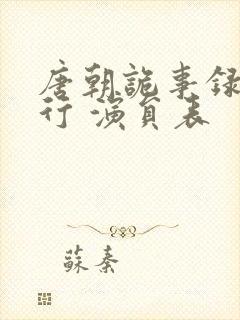 唐朝詭事録
行 演員表
蘇秦